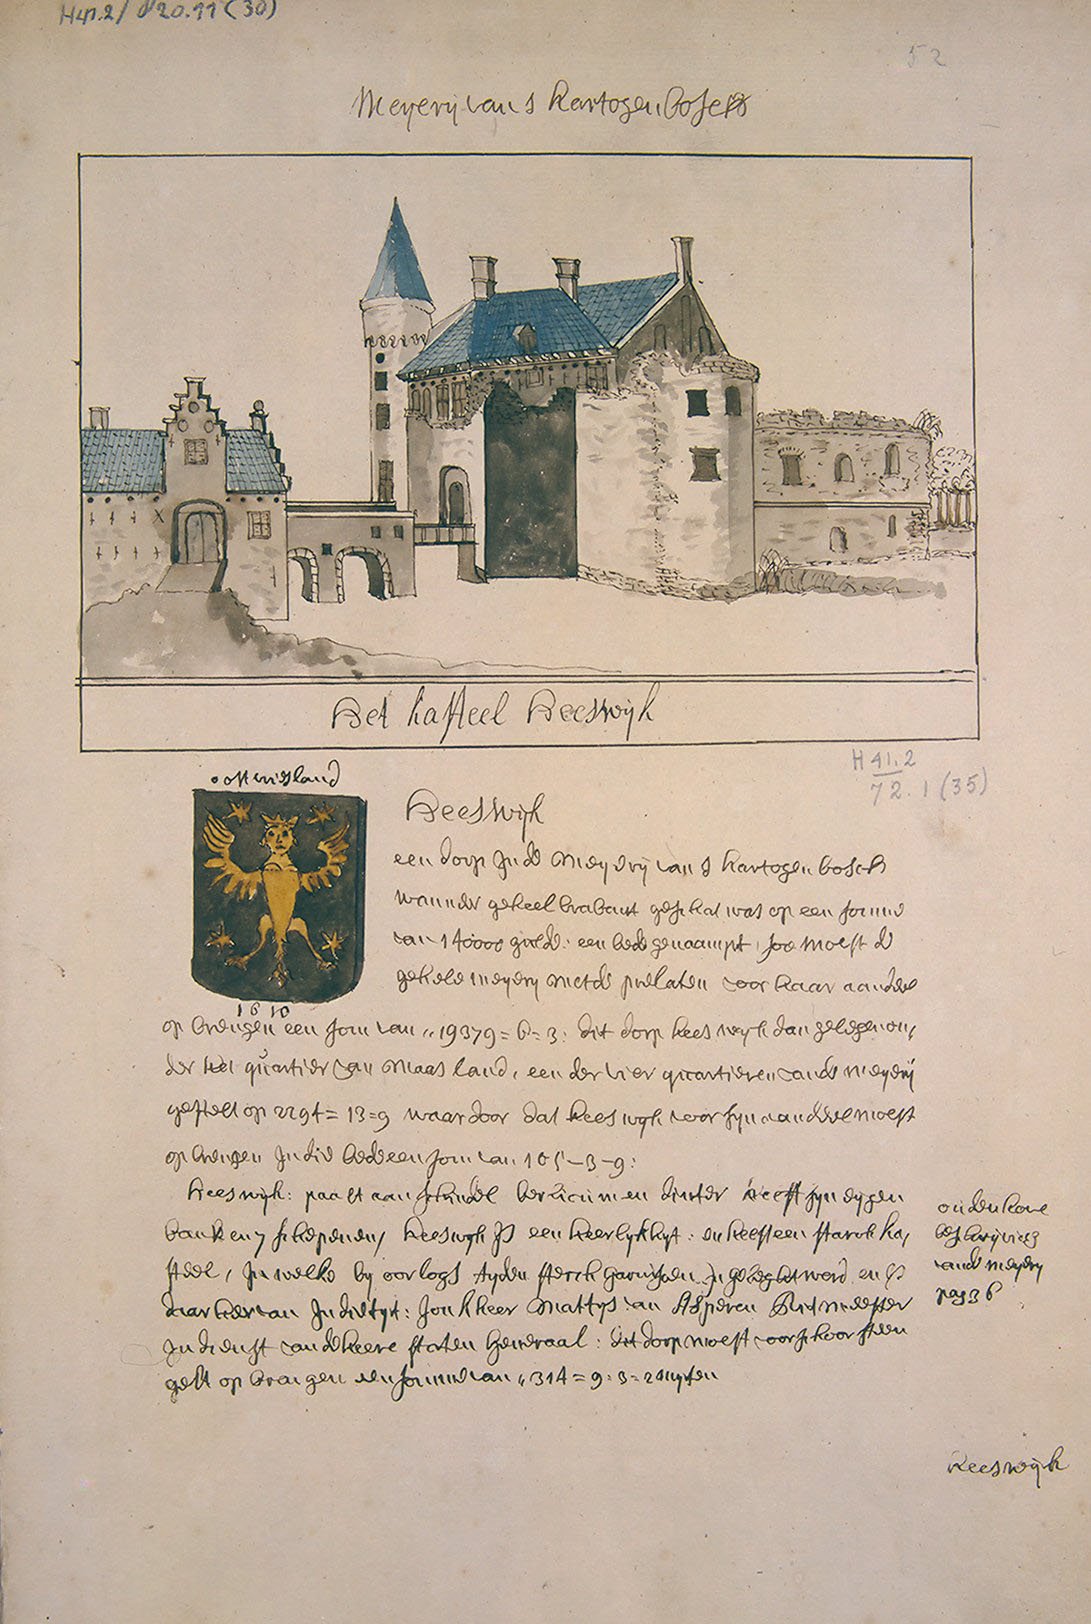 H41.2/ d20.11 (30)
52
Meyerij van s hartogenbosch
Het kasteel Heeswijk
H 41.2
72.1 (35)
oost vriesland
1610
Heeswijk
een dorp In de Meyerij van s hartogenbosch
wanneer geheel brabant geschat was op een somme
van 140000 guld: een bede genaampt soo moest de
geheele meyery met de prelaten voor haar aandeel
op brengen een som van „19379=6=3: dit dorp heeswyk dan gelegen on,
der het quartier van Maasland, een der vier quartieren vande meyerij
gestelt op 2294=13=9 waar door dat heeswyk voor syn aandeel moest
op brengen In die bede een som van 105-3-9:
heeswijk: paalt aan schindel berlicum en dinter heeft syn eygen
bank en 7 schepenen, heeswyk Is een heerlykhyt: en heeft een starck ka,
steel, In welke by oorlogs tyden sterck garnisoen In geleght werd en is
daar heer van In die tyt: Jonkheer Mattys van Asperen Ritmeester
In dienst van de heere staten Generaal: dit dorp moest voor schoorsteen
gelt op brengen een somme van „314=9:3=2 duyten
oudenhove
beschryvings
vande meyery
pag 36
heeswijk